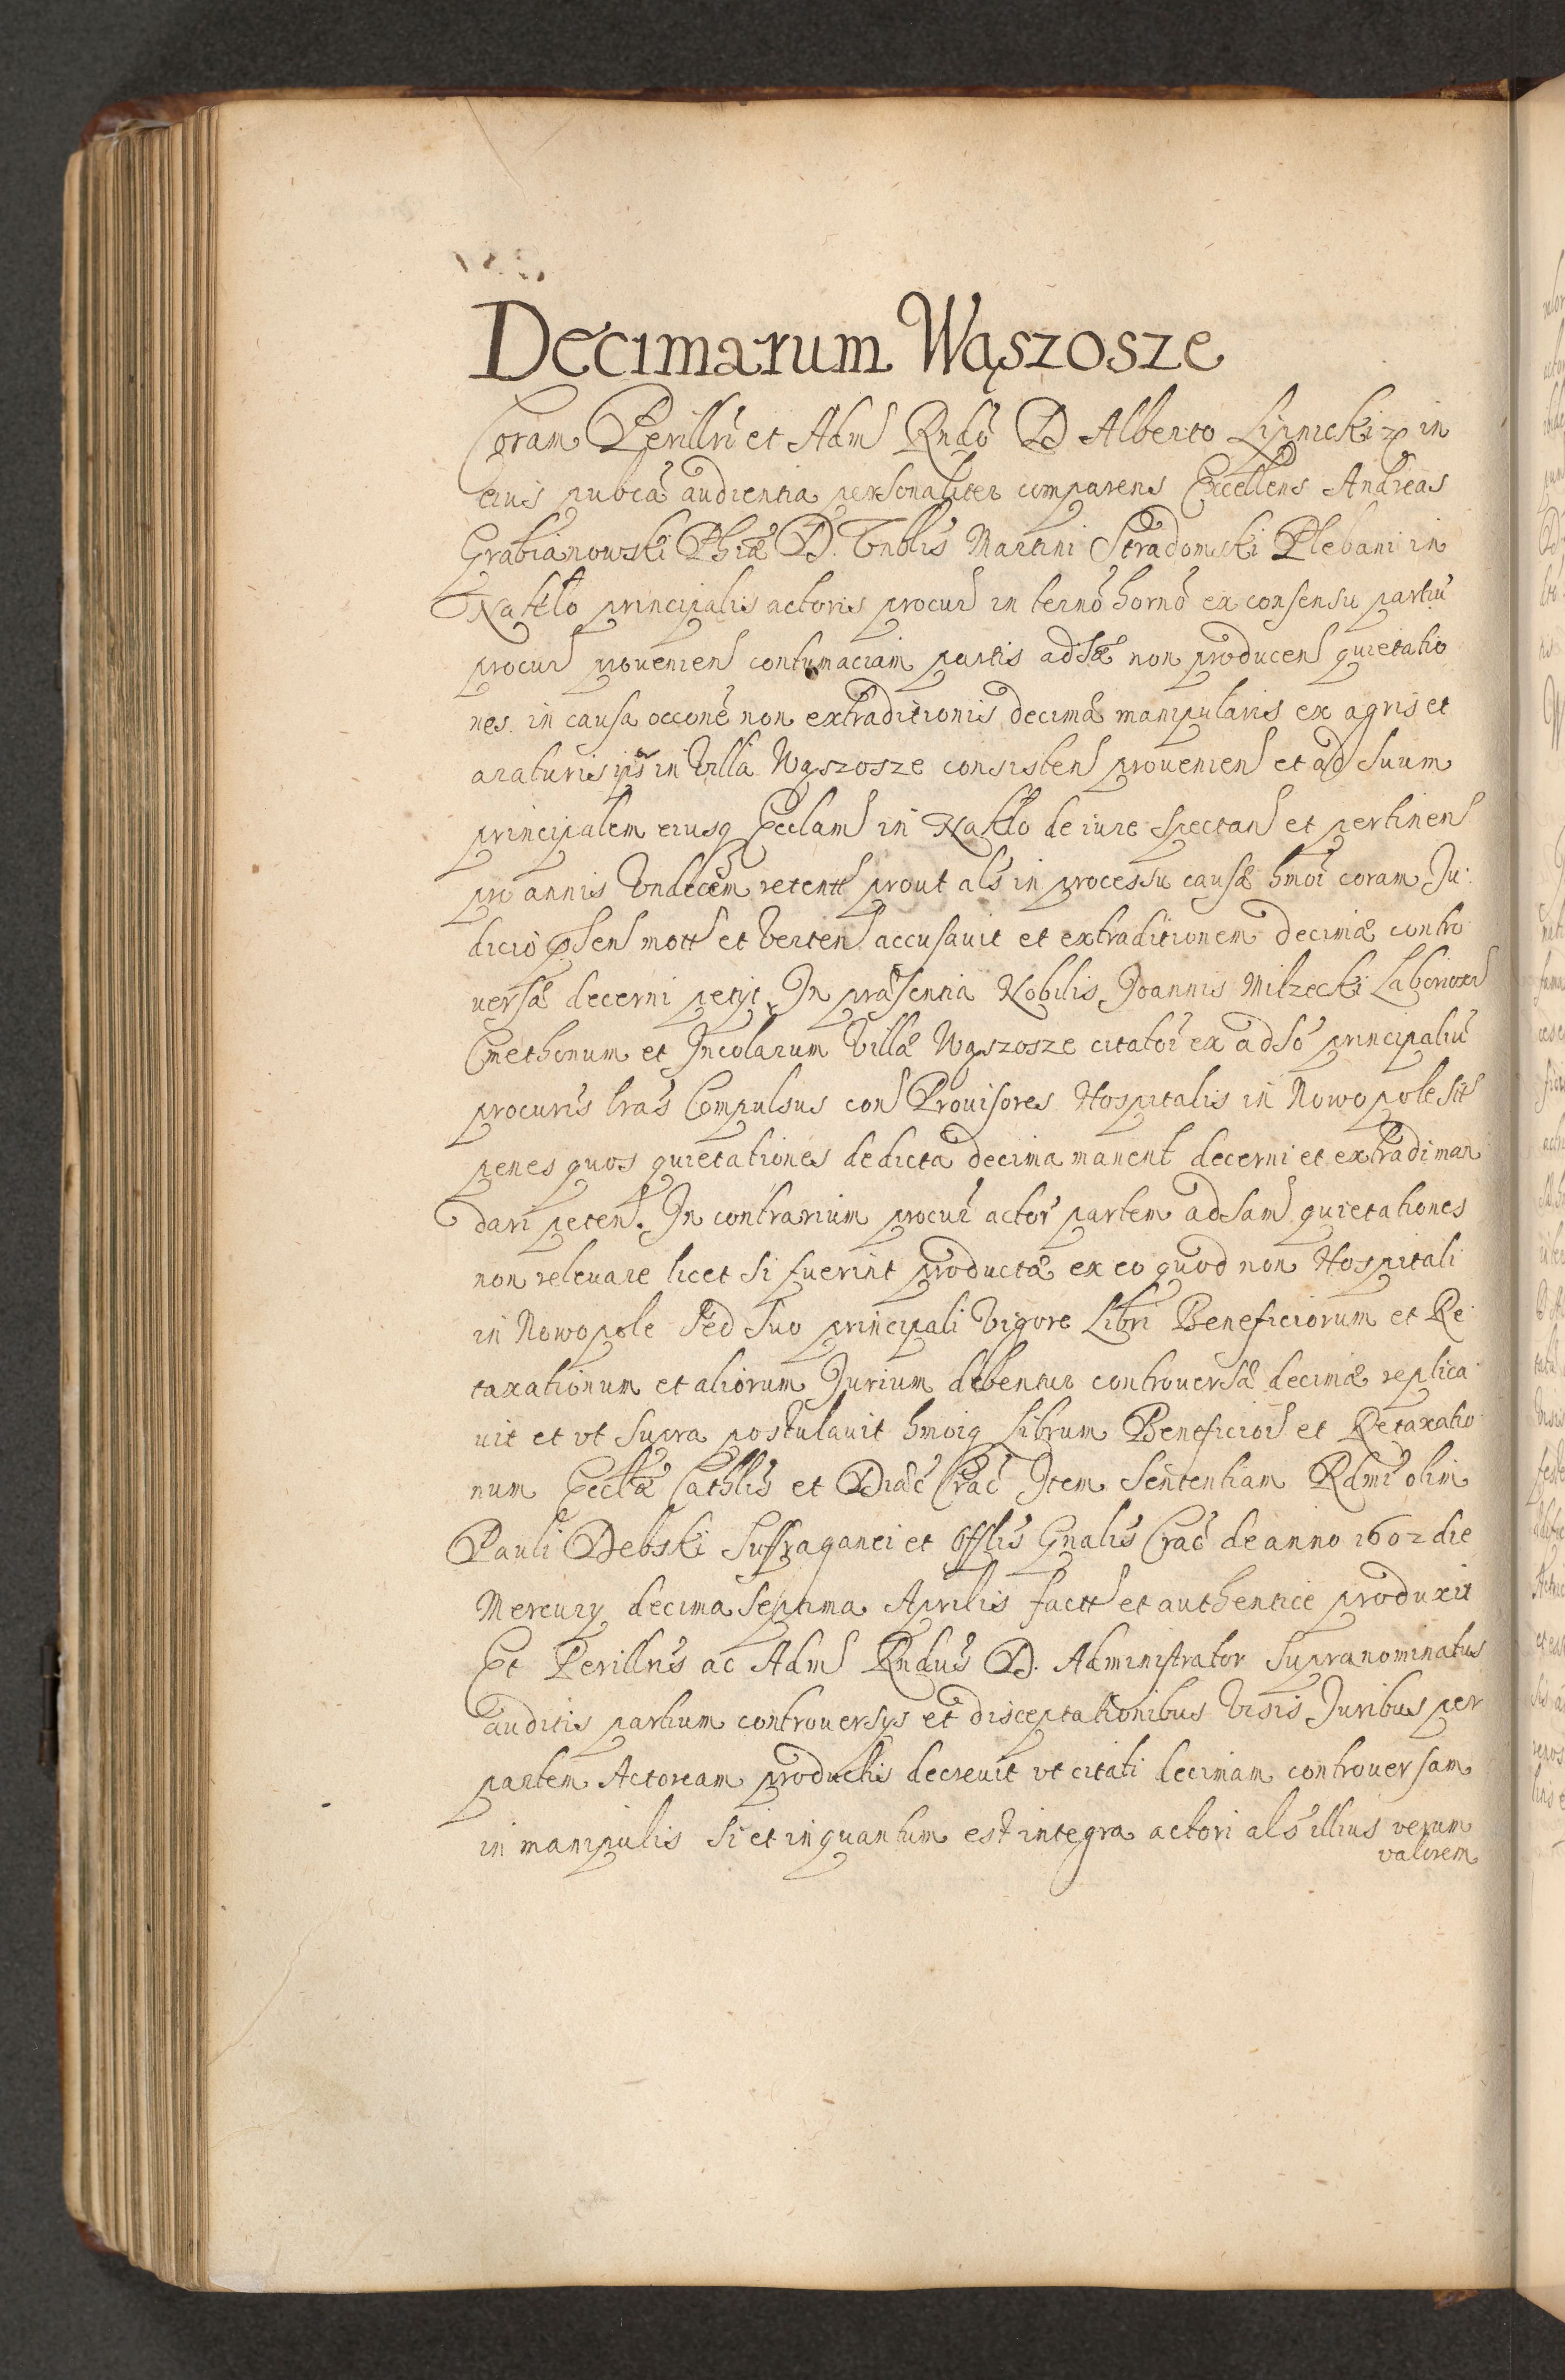 Decimarum Wąszosze
Coram Perillri et Adm Rndo D Alberto Lipnicki in
eius pubca audientia personaliter comparens Excellens Andreas
Grabianowski Phiæ D. Vnblis Martini Stradomski Plebani in
Nakło principalis actoris procur in termō hornō ex consensu partiū
procur prouenien contumaciam partis adsæ non producen quietatio
nes in causa occone non extraditionis decimæ manipularis ex agris et
araturis in Villa Wąszosze consisten prouenien et ad suum
principalem eiusq Ecclam in Nakło de iure spectan et pertinen
pro annis Vndecem retent prout als in processu causæ hmoi coram Iu
dicio psen mott et verten accusauit et extraditionem decimæ contro
uersæ decerni petijt. In præsentia Nobilis Ioannis Milzecki Laborios
Cmethonum et Incolarum Villæ Wąszosze citator ex adso principaliū
procuris lras Compulsus con Prouisores Hospitalis in Nowopole sit
penes quos quietationes de dicta decima manent decerni et extradi man
dari peten. In contrarium procur actor partem adsam quietationes
non releuare licet si fuerint productæ ex eo quod non Hospitali
in Nowopole sed suo principali vigore Libri Beneficiorum et Re
taxationum et aliorum Iurium debentur controuersæ decimæ replica
uit et vt supra postulauit hmoiq librum Beneficior et Retaxatio
num Ecclæ Cathlis et Diæc Crac Item Sententiam Rdmi olim
Pauli Debski Suffraganei et Offlis Gnalis Crac de anno 1602 die
Mercury decima septima Aprilis fact et authentice produxit
Et Perillris ac Adm Rndus D. Administrator supranominatus
auditis partium controuersys et disceptationibus visis Iuribus per
partem Actoream productis decreuit vt citati decimam controuersam
in manipulis si et inquantum est integra actori als illius verum
valorem